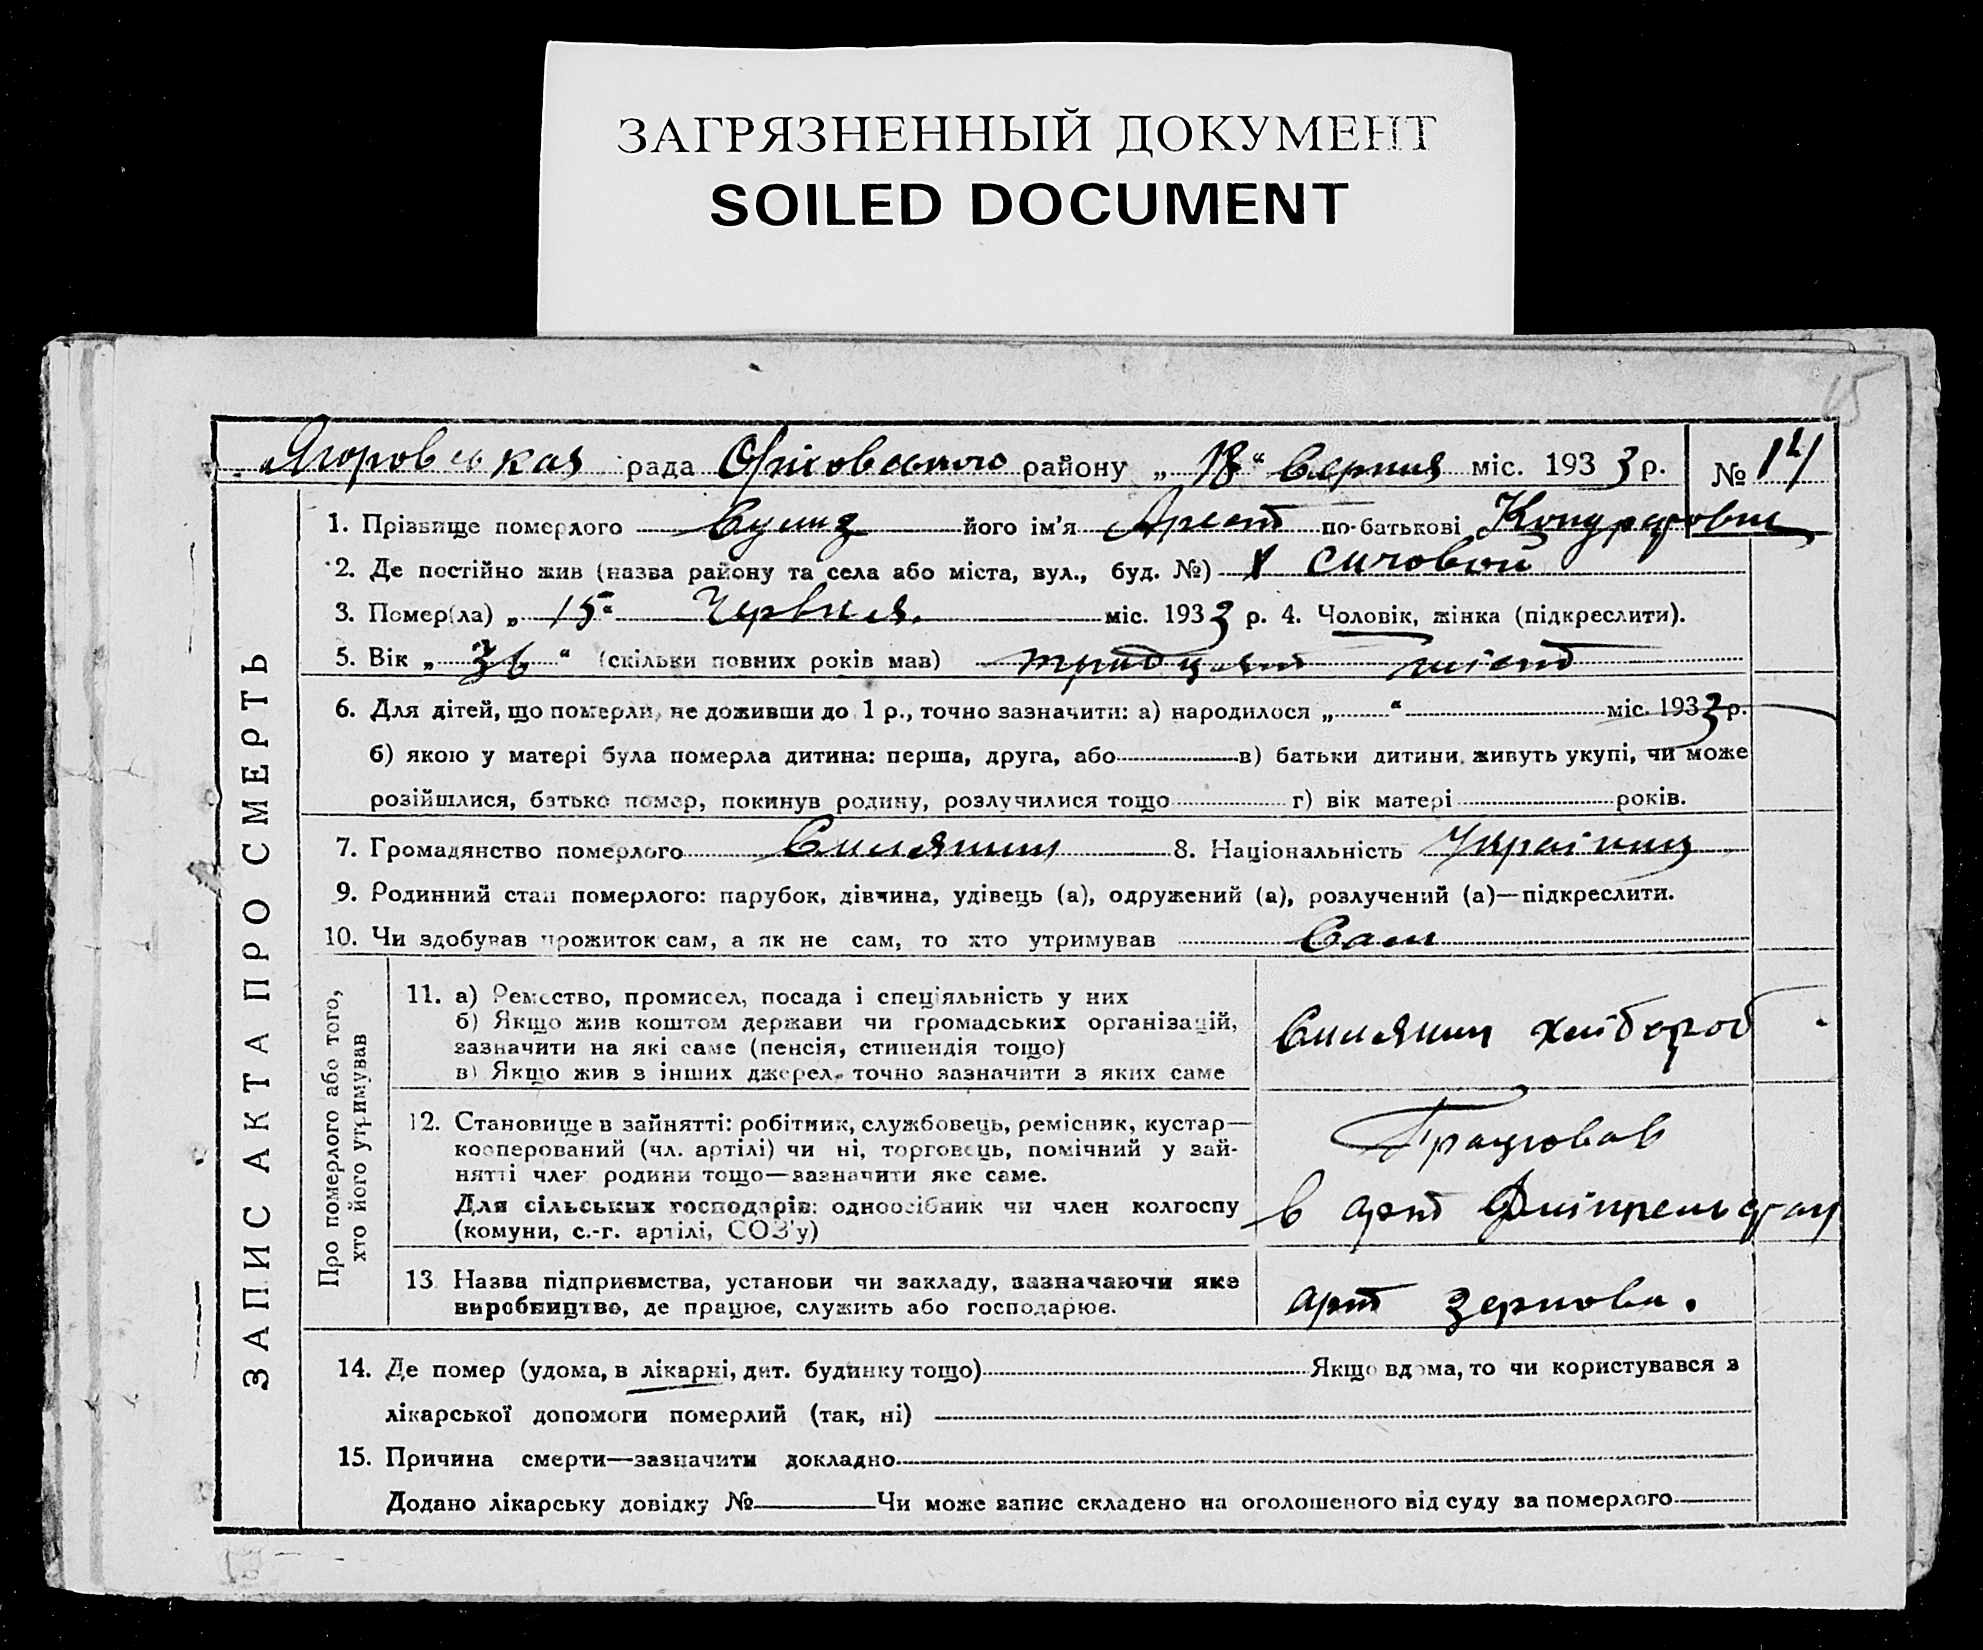 ЗАГРЯЗНЕННЫЙ ДОКУМЕНТ
SOILED DOCUMENT
15
рада району „ 18 “ Серпня міс. 193 3 р. № 14
1. Прізвище померлого його ім’я Арсент по-батькові
2. Де постійно жив (назва району та села або міста, вул., буд. №) х Сичовой
3. Помер(ла) „ 15 “ Червня. міс. 193 3 р. 4. Чоловік, жінка (підкреслити).
5. Вік „ 36 “ (скільки повних років мав) тридцят шість
6. Для дітей, що померли, не доживши до 1 р., точно зазначити: а) народилося „ “ міс. 193 3 р.
б) якою у матері була померла дитина: перша, друга, або в) батьки дитини живуть укупі, чи може
розійшлися, батько помер, покинув родину, розлучилися тощо г) вік матері років.
7. Громадянство померлого Силянин 8. Національність Українц
9. Родинний стан померлого: парубок, дівчина, удівець (а), одружений (а), розлучений (а)—підкреслити.
10. Чи здобував прожиток сам, а як не сам, то хто утримував Сам
ЗАПИС АКТА ПРО СМЕРТЬ
Про померлого або того,
хто його утримував
11. а) Ремество, промисел, посада і спеціяльність у них
б) Якщо жив коштом держави чи громадських організацій,
зазначити на які саме (пенсія, стипендія тощо)
в) Якщо жив з інших джерел, точно зазначити з яких саме
Силянин хлібороб
12. Становище в зайнятті: робітник, службовець, ремісник, кустар—
кооперований (чл. артілі) чи ні, торговець, помічний у зай-
нятті член родини тощо—зазначити яке саме.
Для сільських господарів: одноосібник чи член колгоспу
(комуни, с.-г. артілі, СОЗ’у)
Працював
в арт
13. Назва підприємства, установи чи закладу, зазначаючи яке
виробництво, де працює, служить або господарює.
арт зернова.
14. Де помер (удома, в лікарні, дит. будинку тощо) Якщо вдома, то чи користувався з
лікарської допомоги померлий (так, ні)
15. Причина смерти—зазначити докладно
Додано лікарську довідку № Чи може запис складено на оголошеного від суду за померлого